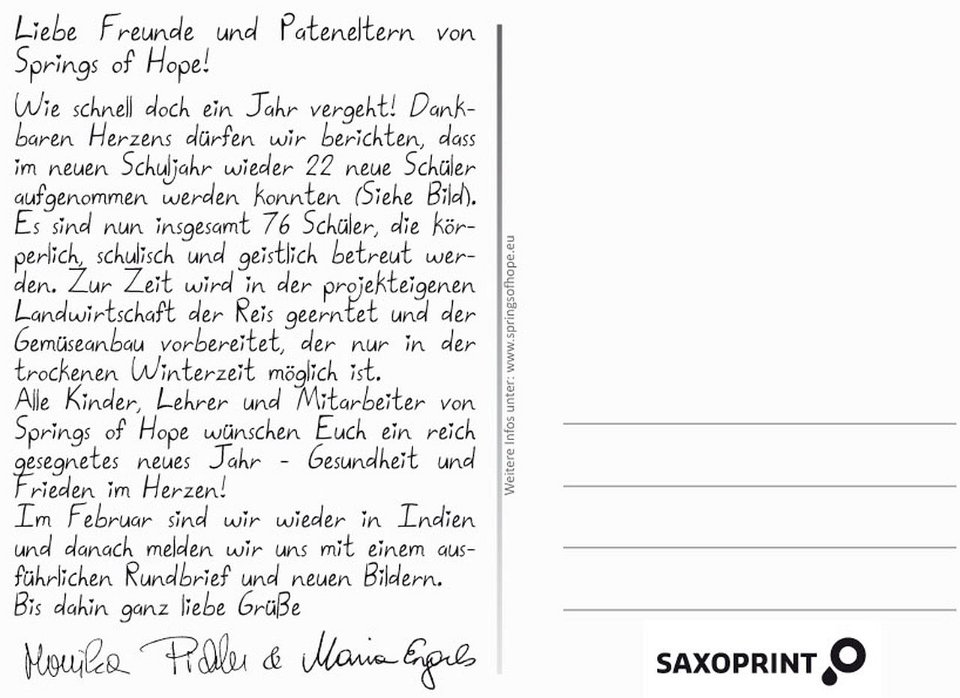 Liebe Freunde und Pateneltern von
Springs of Hope!
Wie schnell doch ein Jahr vergeht! Dank-
baren Herzens dürfen wir berichten, dass
im neuen Schuljahr wieder 22 neue Schüler
aufgenommen werden konnten (Siehe Bild).
Es sind nun insgesamt 76 Schüler, die kör-
perlich, schulisch und geistlich betreut wer-
den. Zur Zeit wird in der projekteigenen
Landwirtschaft der Reis geerntet und der
Gemüseanbau vorbereitet, der nur in der
trockenen Winterzeit möglich ist.
Alle Kinder, Lehrer und Mitarbeiter von
Springs of Hope wünschen Euch ein reich
gesegnetes neues Jahr - Gesundheit und
Frieden im Herzen!
Im Februar sind wir wieder in Indien
und danach melden wir uns mit einem aus-
führlichen Rundbrief und neuen Bildern.
Bis dahin ganz liebe Grüße
Monika & Maria Engels
Weitere Infos unter: www.springsofhope.eu
SAXOPRINT